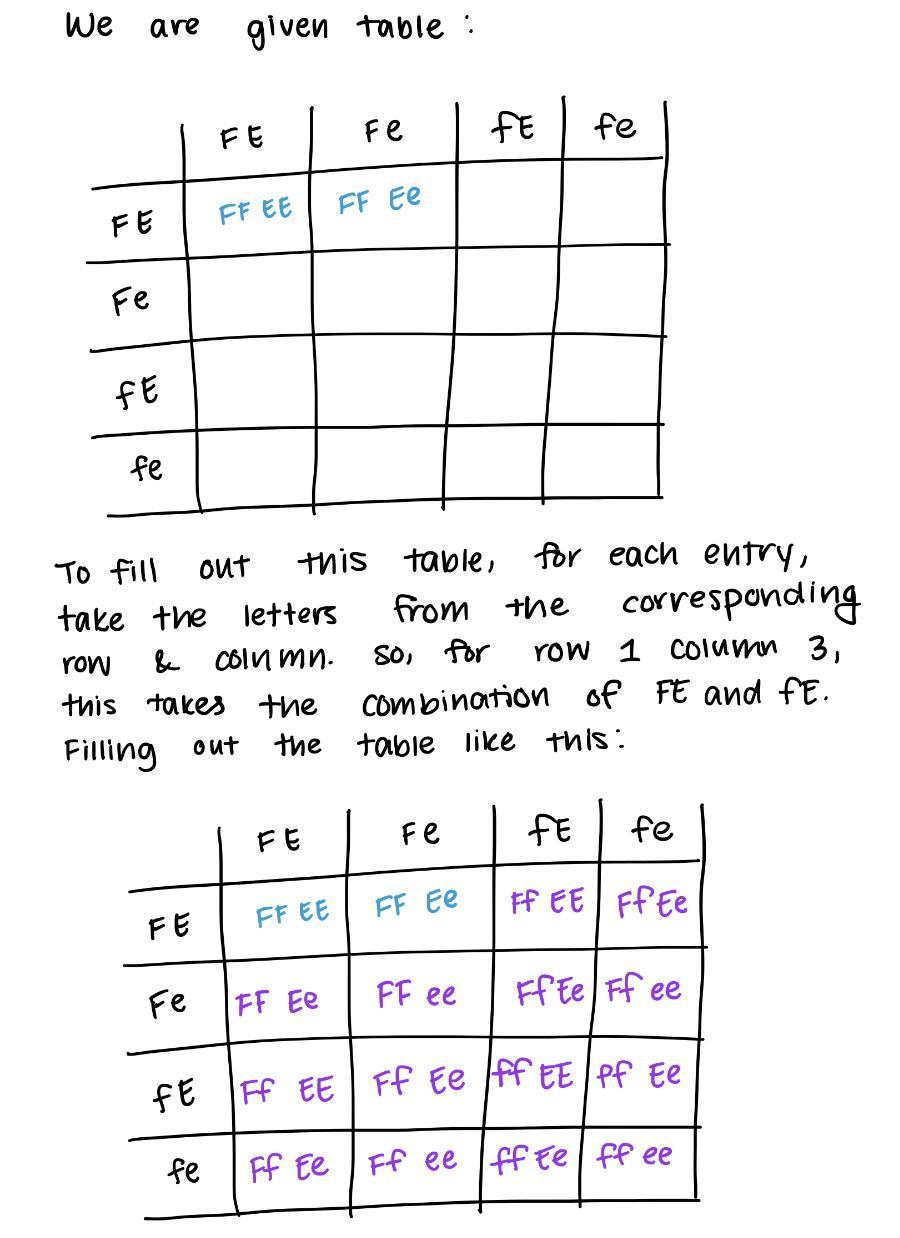 We are given table:
FE Fe fE fe
FE FF EE FF Ee
Fe
fE
fe
To fill out this table, for each entry,
take the letters from the corresponding
row & colnmn. so, for row 1 column 3,
this takes the combination of FE and fE.
Filling out the table like this:
FE Fe fE fe
FE FF EE FF Ee Ff EE Ff Ee
Fe FF Ee FF ee Ff Ee Ff ee
fE Ff EE Ff Ee ff EE ff Ee
fe Ff Ee Ff ee ff Ee ff ee